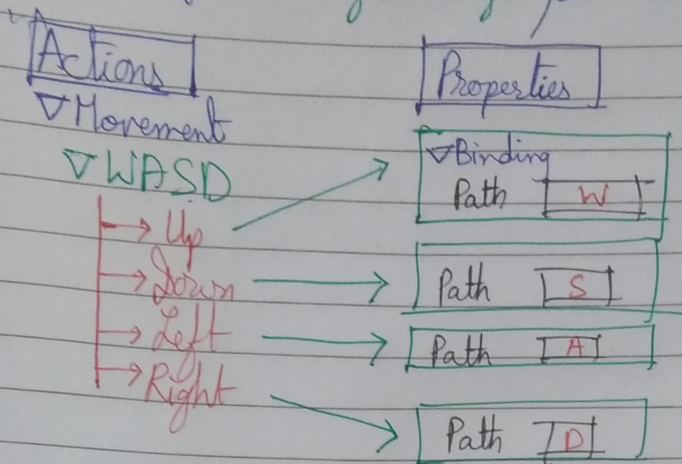 Actions
▽Movement
▽WASD
Up
Down
Left
Right
Properties
▽Binding
Path W
Path S
Path A
Path D